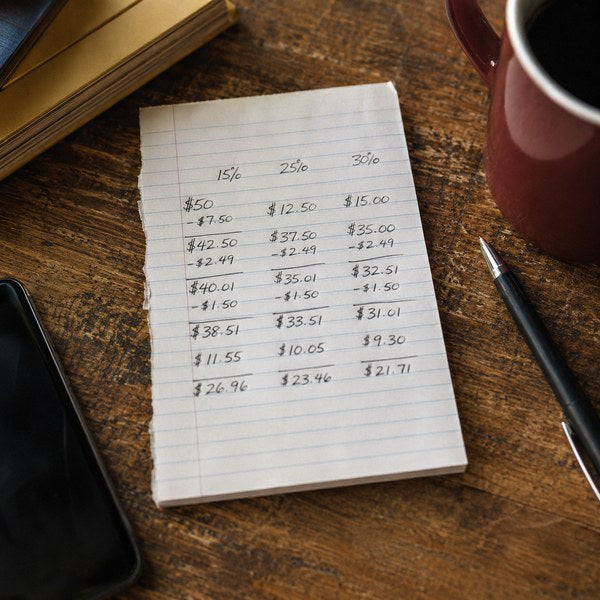 15% 25% 30%
$50
-$7.50 $12.50 $15.00
$42.50 $37.50 $35.00
-$2.49 -$2.49 -$2.49
$40.01 $35.01 $32.51
-$1.50 -$1.50 -$1.50
$38.51 $33.51 $31.01
$11.55 $10.05 $9.30
$26.96 $23.46 $21.71